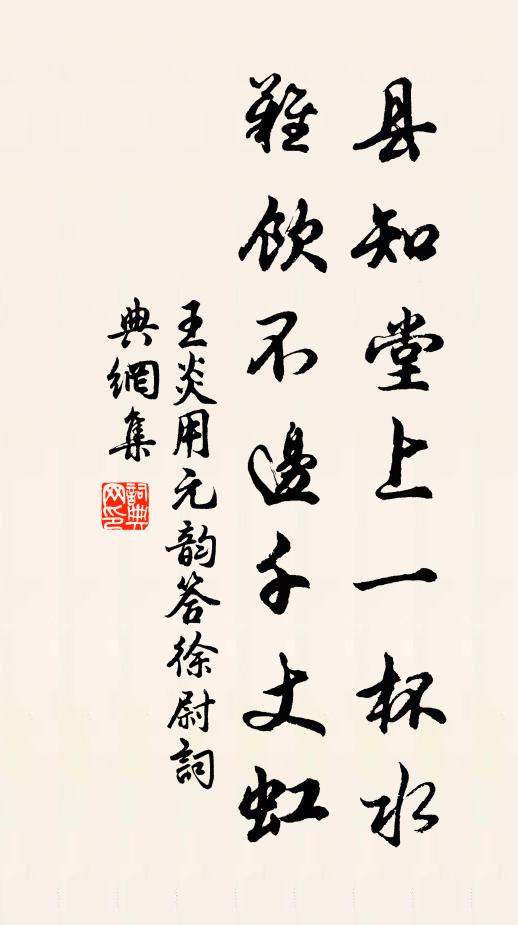 县知堂上一杯水
难饮不边千丈虹
王炎用元韵答徐尉詞
典網集
詞典网印